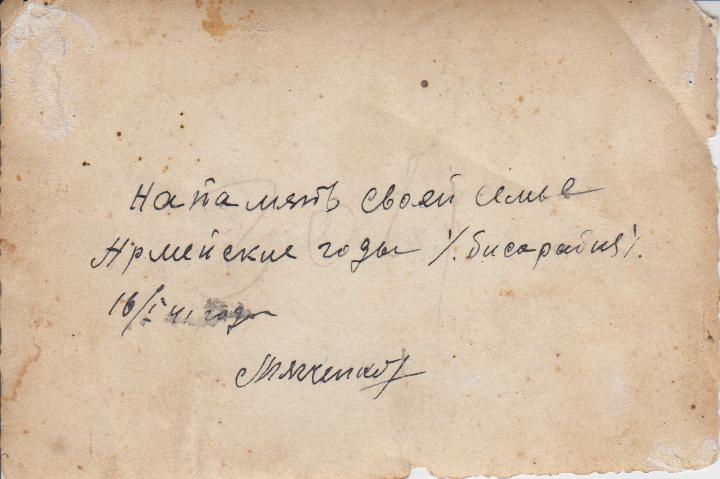 На память своей семье
Армейские годы /. бисарабия /.
16/I 41 года